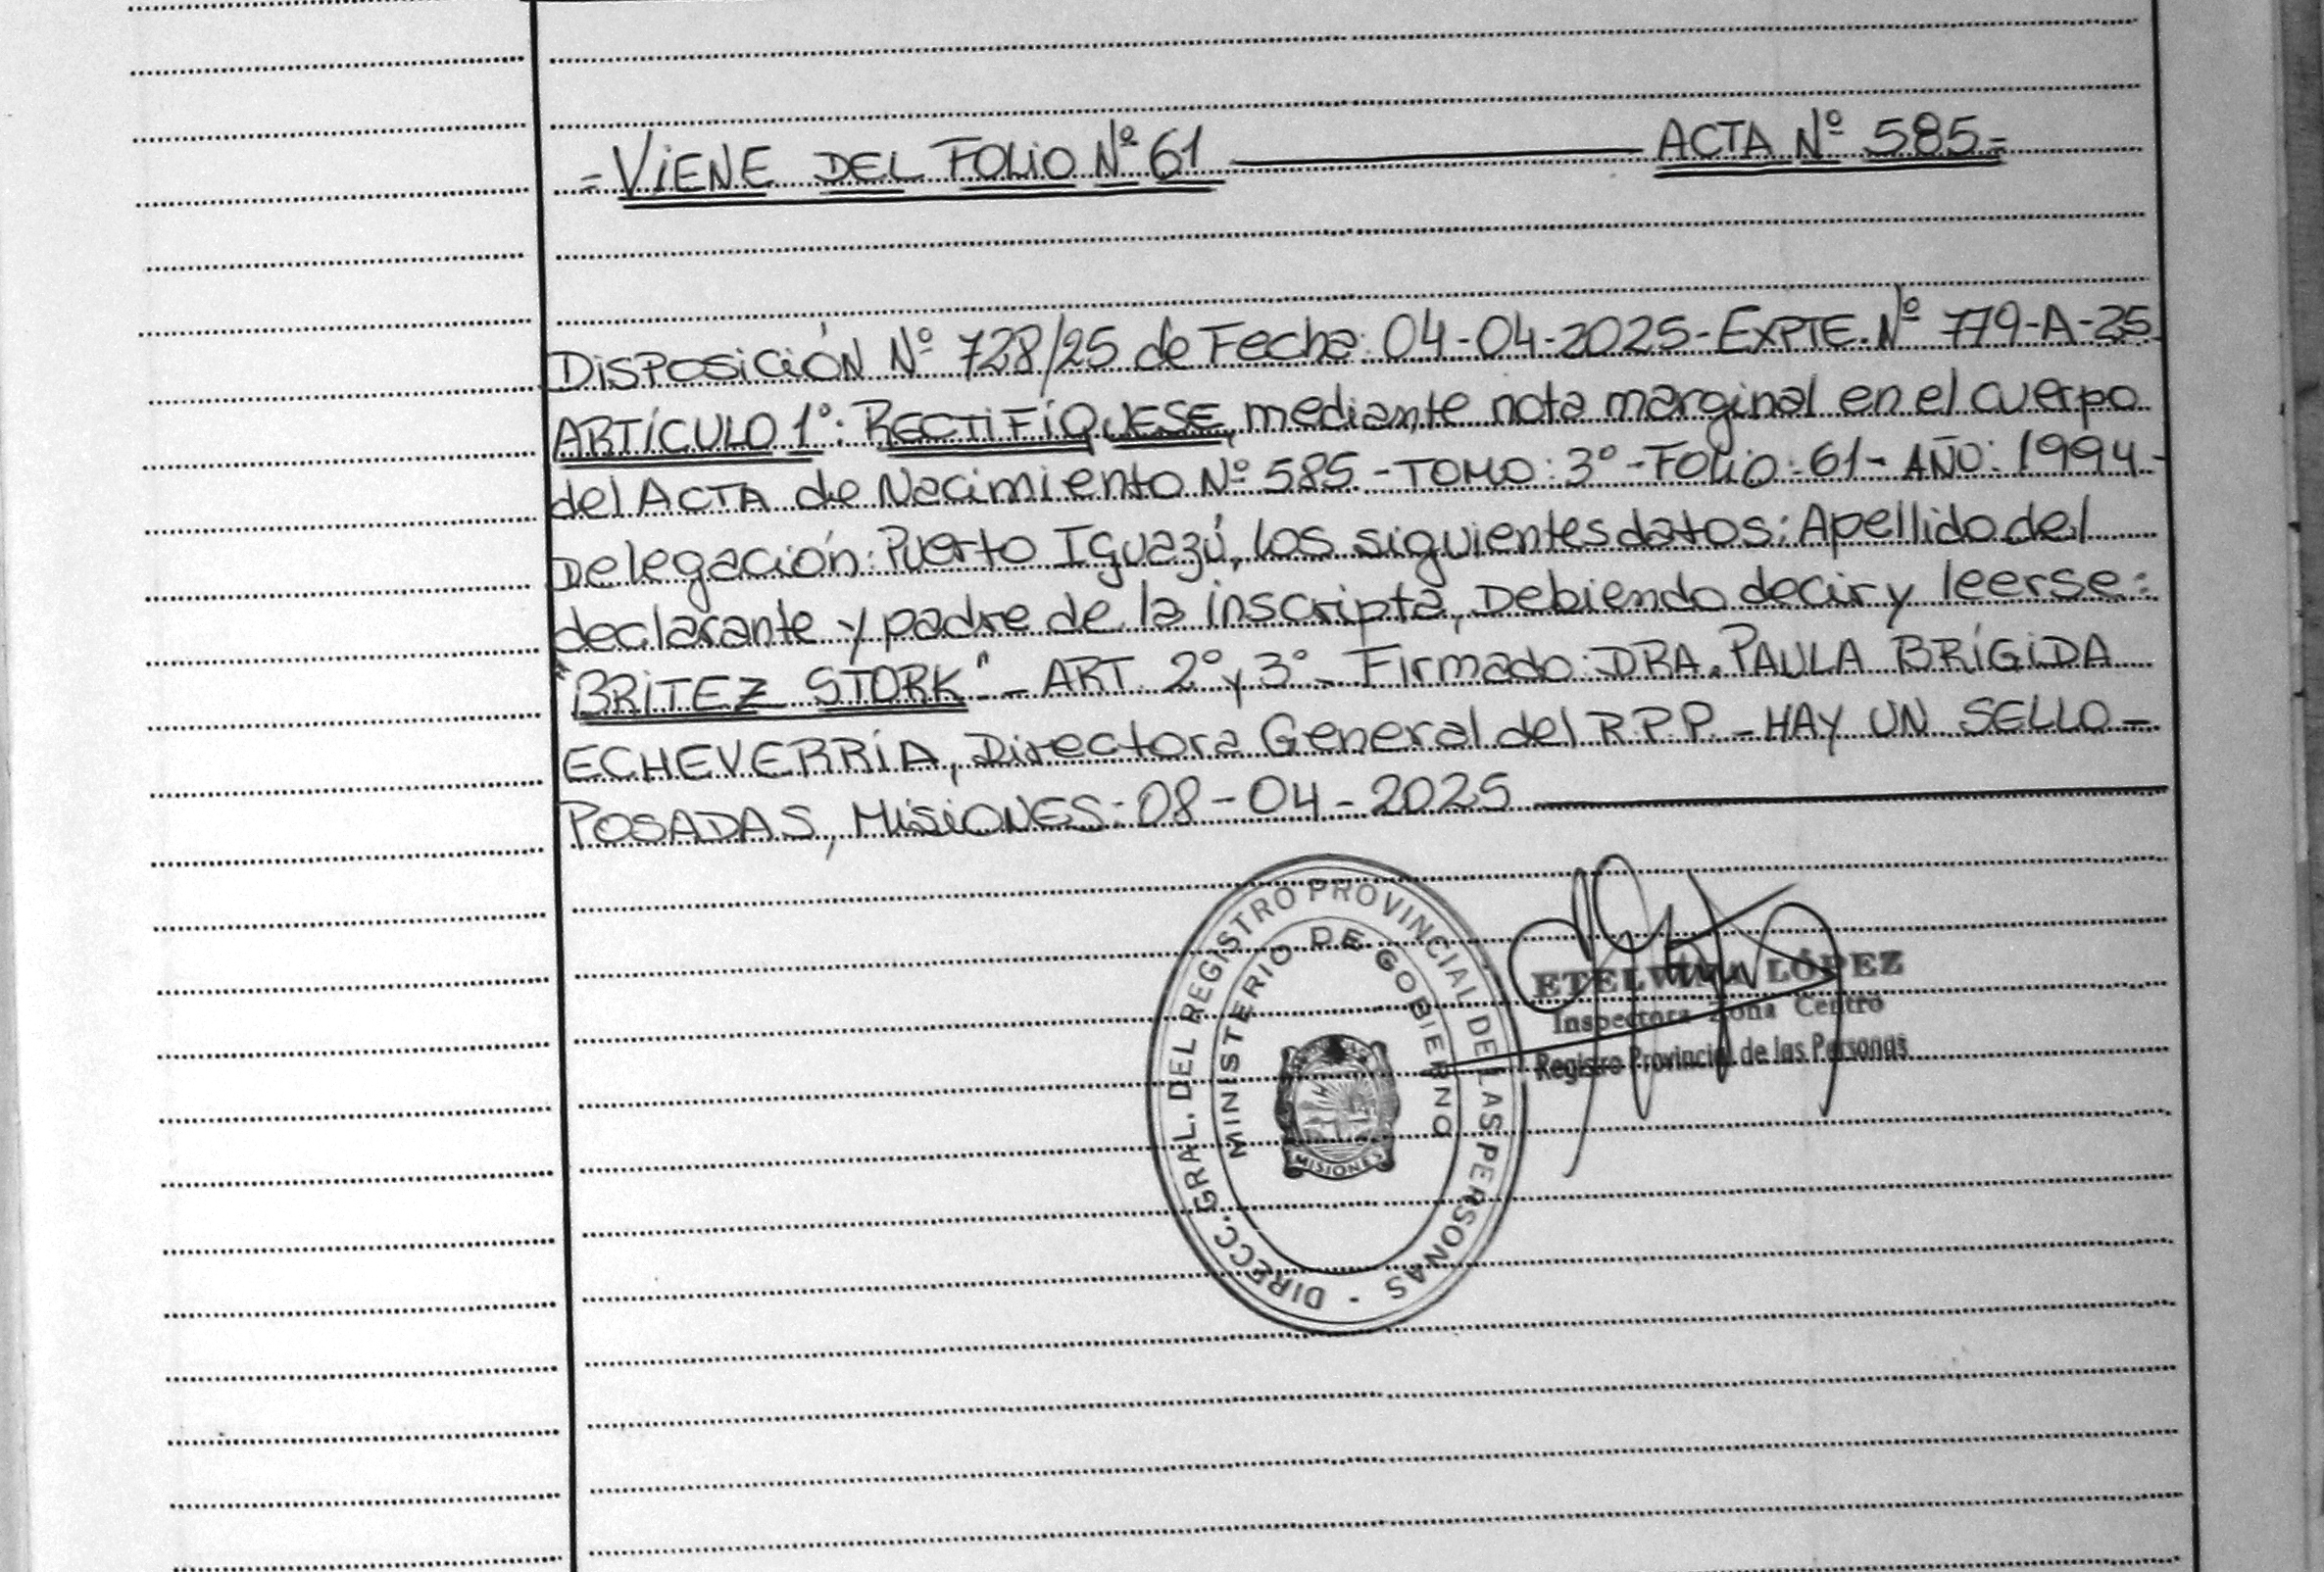 = VIENE DEL FOLIO Nº 61 ——— ACTA Nº 585 =
DISPOSICIÓN Nº 728/25 de Fecha: 04-04-2025 - EXPTE. Nº 779-A-25
ARTÍCULO 1°: RECTIFÍQUESE, mediante nota marginal en el cuerpo
del ACTA de Nacimiento Nº 585 - TOMO: 3° - FOLIO: 61 - AÑO: 1994 -
Delegación: Puerto Iguazú, los siguientes datos: Apellido del
declarante y padre de la inscripta, Debiendo decir y leerse:
"BRITEZ STORK" - ART. 2° y 3° - Firmado: DRA. PAULA BRÍGIDA
ECHEVERRÍA, Directora General del R.P.P. - HAY UN SELLO -
POSADAS, MISIONES: 08-04-2025 ———
DIRECC. GRAL. DEL REGISTRO PROVINCIAL DE LAS PERSONAS -
MINISTERIO DE GOBIERNO
MISIONES
ETELVINA LÓPEZ
Inspectora Zona Centro
Registro Provincial de las Personas